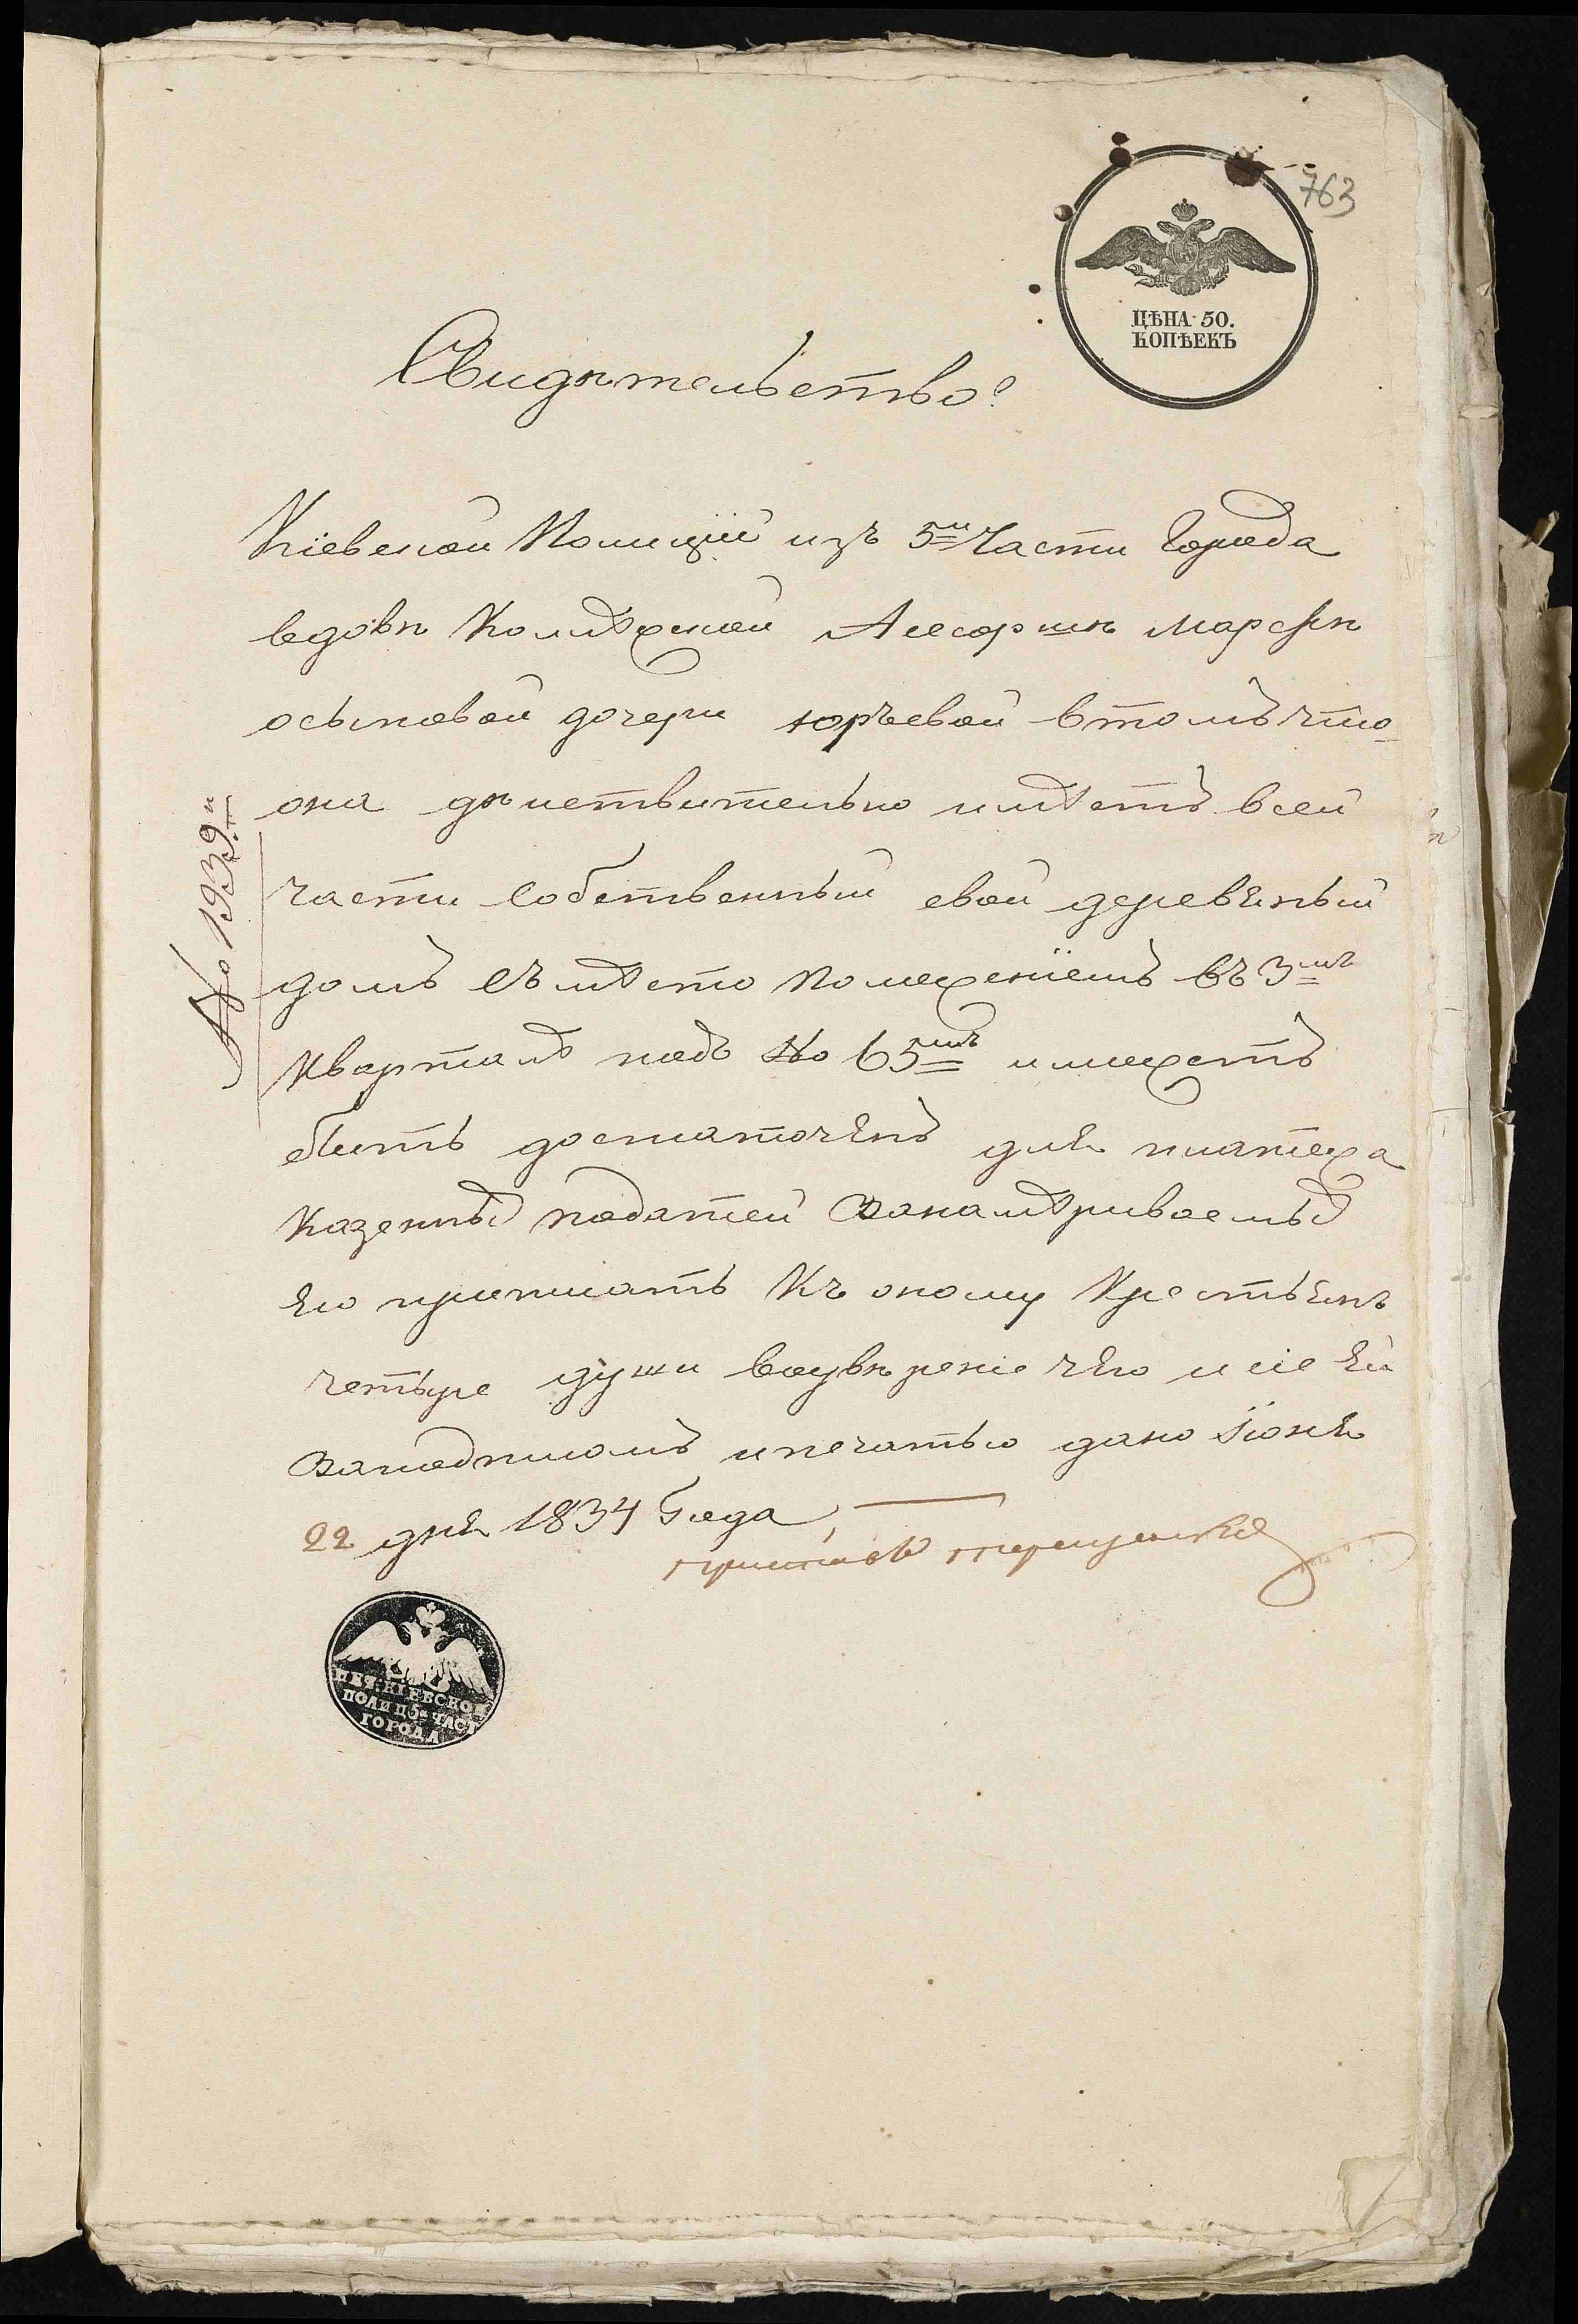 763
ЦѢНА 50.
КОПѢЕКЪ
Свидѣтельство
Кіевской Полиціи изъ 5й Части Города
вдовѣ Колѣжской Ассоршѣ Марѳѣ
осыповой дочери юрьевой втомъ что
она дѣиствительно имѣетъ всей
части собственный свой деревяный
домъ съ мѣсто помеженіемъ въ 3мъ
кварталѣ подъ No 65мъ иможетъ
быть достаточенъ для платежа
казенных податей занамѣриваемых
Ею приписать Къ оному Крестьянъ
четыре души воувѣреніе чего и сіе Ей
заподписомъ ипечатью дано Іюня
22 дня 1834 Года
приставъ
No 1939й
ПЕЧ. КІЕВСКОЙ
ПОЛИЦ. 5й ЧАСТ
ГОРОДА